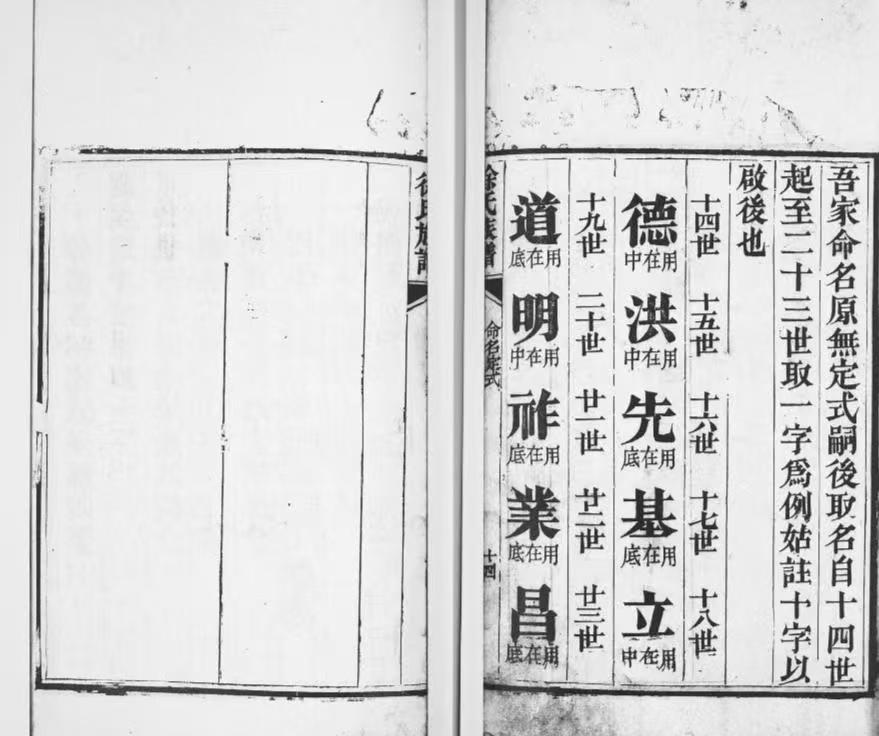 吾家命名原無定式嗣後取名自十四世
起至二十三世取一字爲例姑註十字以
啟後也
十四世 十五世 十六世 十七世 十八世
德用在中 洪用在中 先用在底 基用在底 立用在中
十九世 二十世 廿一世 廿二世 廿三世
道用在底 明用在中 祚用在底 業用在底 昌用在底
徐氏族譜 命名定式 十四
徐氏族譜